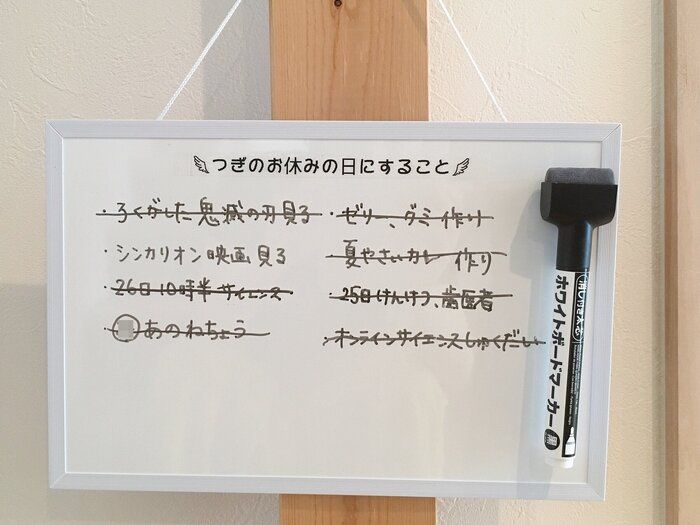 つぎのお休みの日にすること
・ろくがした鬼滅の刃見る
・シンカリオン映画見る
・26日10時半サイエンス
・あのねちょう
・ゼリー、グミ作り
・夏やさいカレー作り
・25日けんけつ、歯医者
・オンラインサイエンスしゅくだい
消しやすくなる
ホワイトボードマーカー
黒